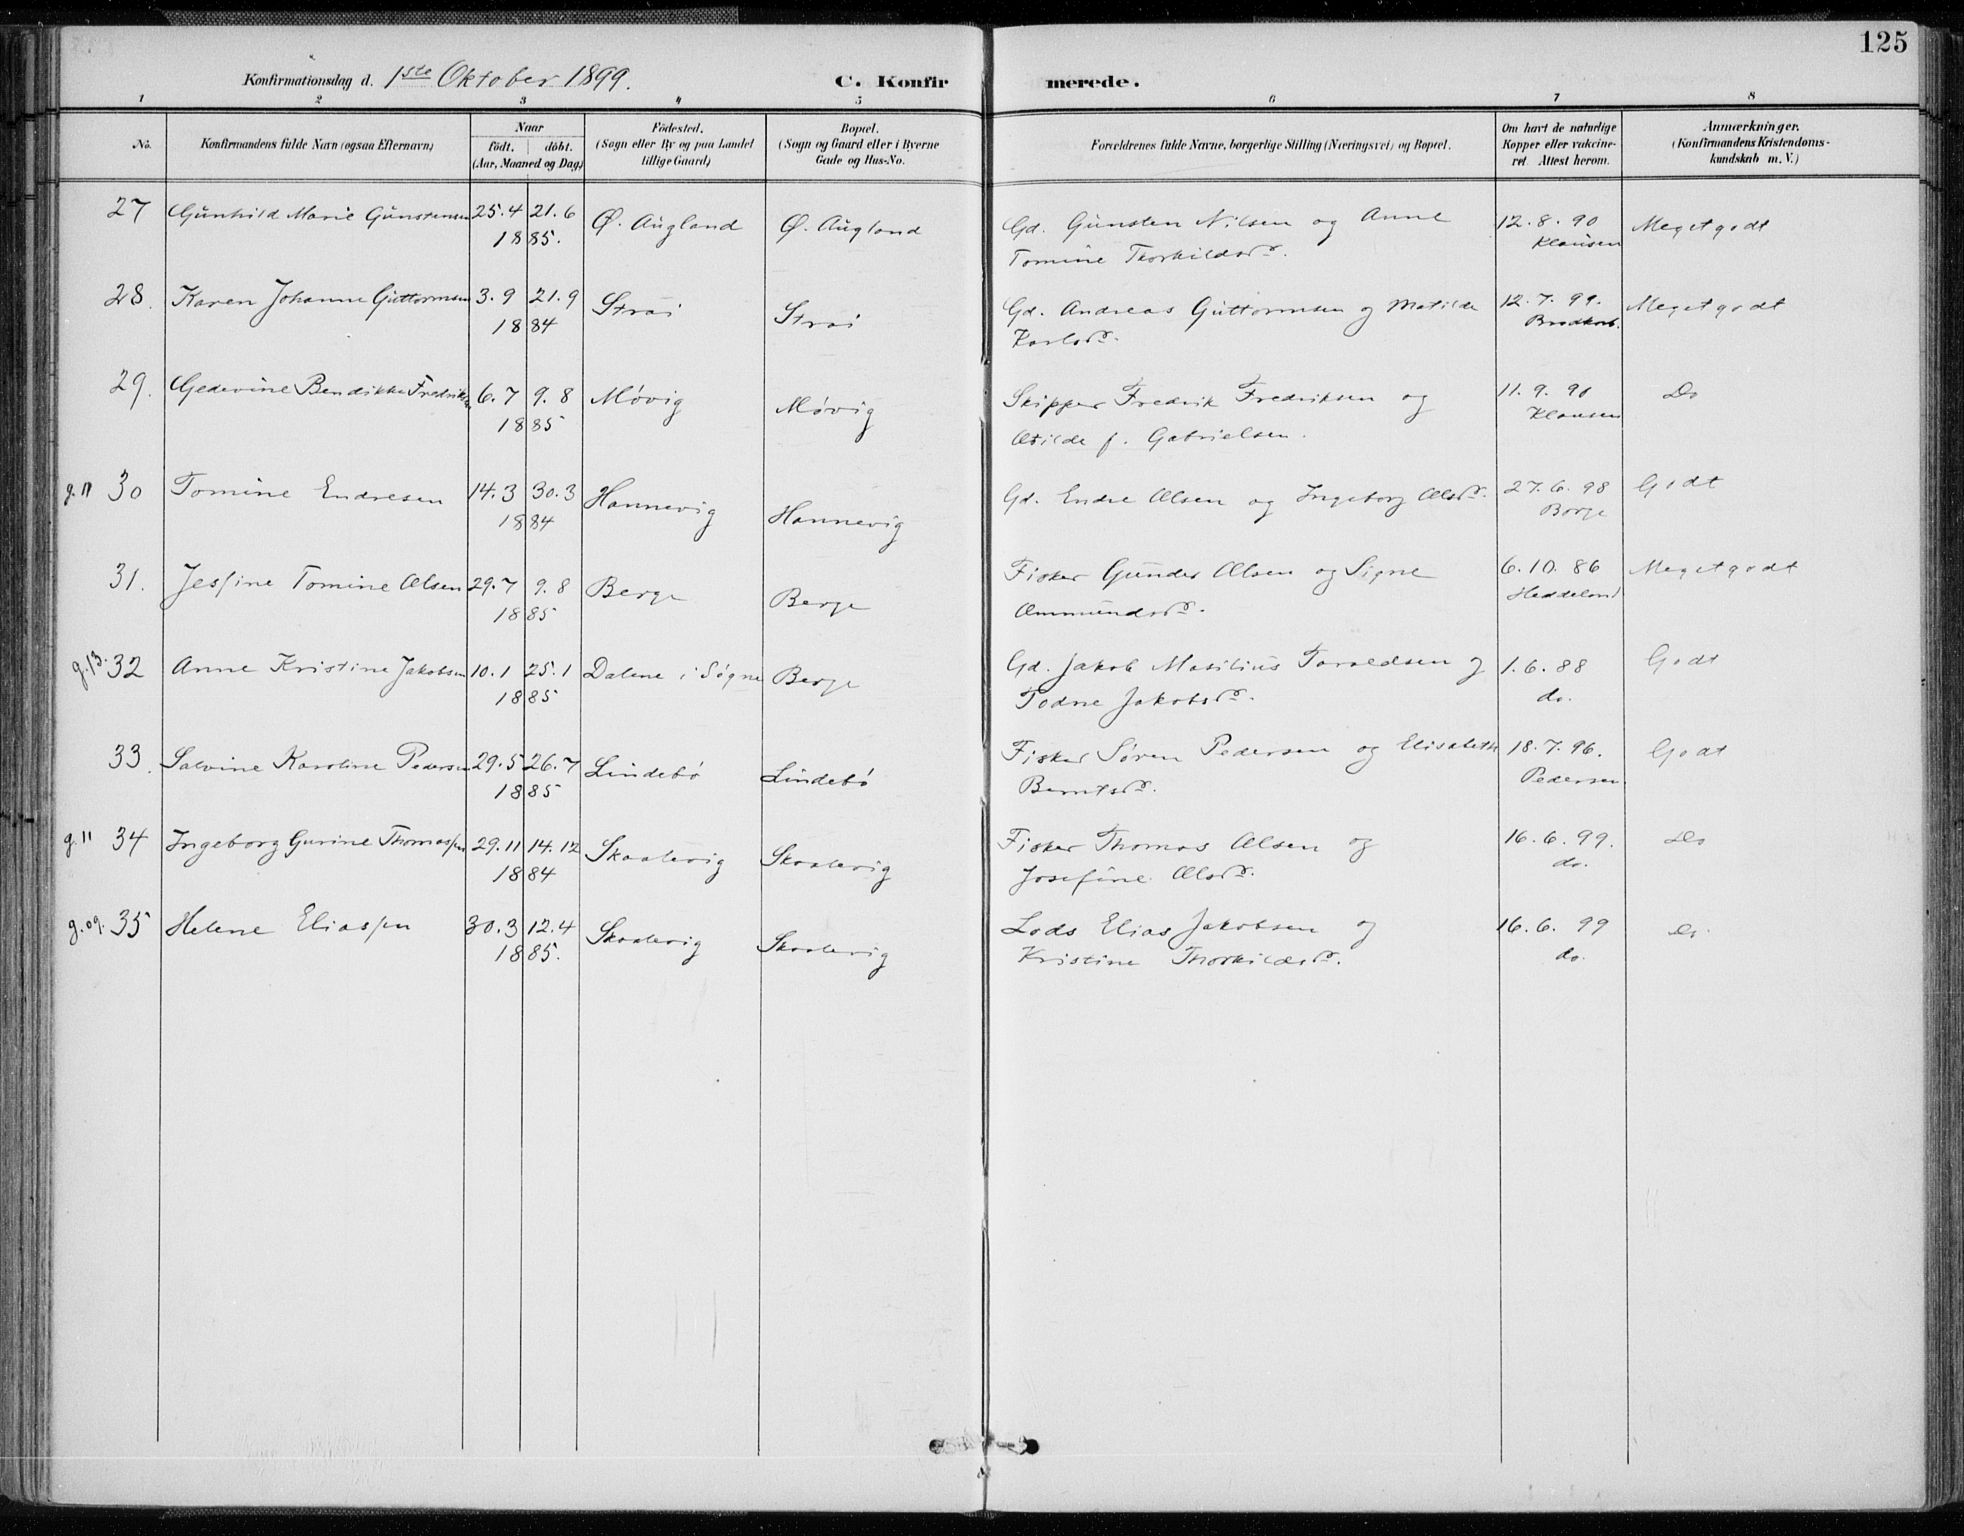 125
Konfirmationsdag d. 1ste Oktober 1899. C. Konfir merede.
1 2 3 4 5 6 7 8
No. Konfirmandens fulde Navn (ogsaa Efternavn) Naar födt. döbt. (Aar, Maaned og Dag) Födested. (Sogn eller By og paa Landet tillige Gaard) Bopæl. (Sogn og Gaard eller i Byerne Gade og Hus-No. Forældrenes fulde Navne, borgerlige Stilling (Næringsvei) og Bopæl. Om havt de naturlige Kopper eller vakcineret Attest herom. Anmærkninger. (Konfirmandens Kristendomskundskab m. V.)
27 Gunhild Marie Gunstensen 25.4 21.6 Ø. Augland Ø. Augland Gd. Gunsten Nilsen og Anne 12.8.90 Meget godt
1885. Tomine Thorkildsd. Klausen
28. Karen Johanne Guttormsen 3.9 21.9 Strai Strai Gd. Andreas Guttormsen og Matilde 12.7.99. Meget godt
1884 Karlsd.
29. Gedevine Bendikke Fredriksen 6.7 9.8 Møvig Møvig Skipper Fredrik Fredriksen og 11.9.90 Do
1885 Otilde f. Gabrielsen. Klausen
g. 11 30 Tomine Endresen 14.3 30.3 Hannevig Hannevig Gd. Endre Olsen og Ingeborg Olsd. 27.6.98 Godt
1884 Borge
31. Jesfine Tomine Olsen 29.7 9.8 Berge Berge Fisker Gunder Olsen og Signe 6.10.86 Meget godt
1885 Ommundsd. Heddeland
g. 13. 32 Anne Kristine Jakobsen 10.1 25.1 Dalene i Søgne Berge Gd. Jakob Masilius Taraldsen og 1.6.88 Godt
1885 Todne Jakobsd. do.
33. Salvine Karoline Pedersen 29.5 26.7 Lindebø Lindebø Fisker Søren Pedersen og Elisabeth 18.7.96. Godt
1885 Berntsd. Pedersen
g. 11 34 Ingeborg Gurine Thomassen 29.11 14.12 Skaalevig Skaalevig Fisker Thomas Olsen og 16.6.99. Do
1884 Josefine Olsd. do.
g. 09. 35 Helene Eliassen 30.3 12.4 Skaalevig Skaalevig Lods Elias Jakobsen og 16.6.99 Do
1885. Kristine Thorkildsd. do.